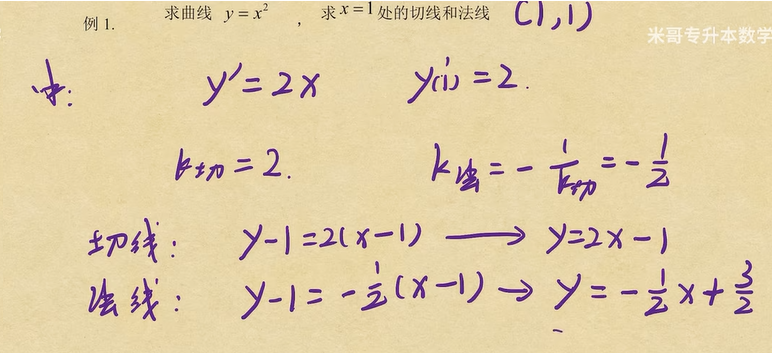 例 1. 求曲线 y = x² , 求 x = 1 处的切线和法线 (1,1)
米哥专升本数学
y' = 2x y'(1) = 2.
k切 = 2. k法 = - 1/k切 = - 1/2
切线: y-1=2(x-1) → y=2x-1
法线: y-1=-1/2(x-1) → y=-1/2x+3/2